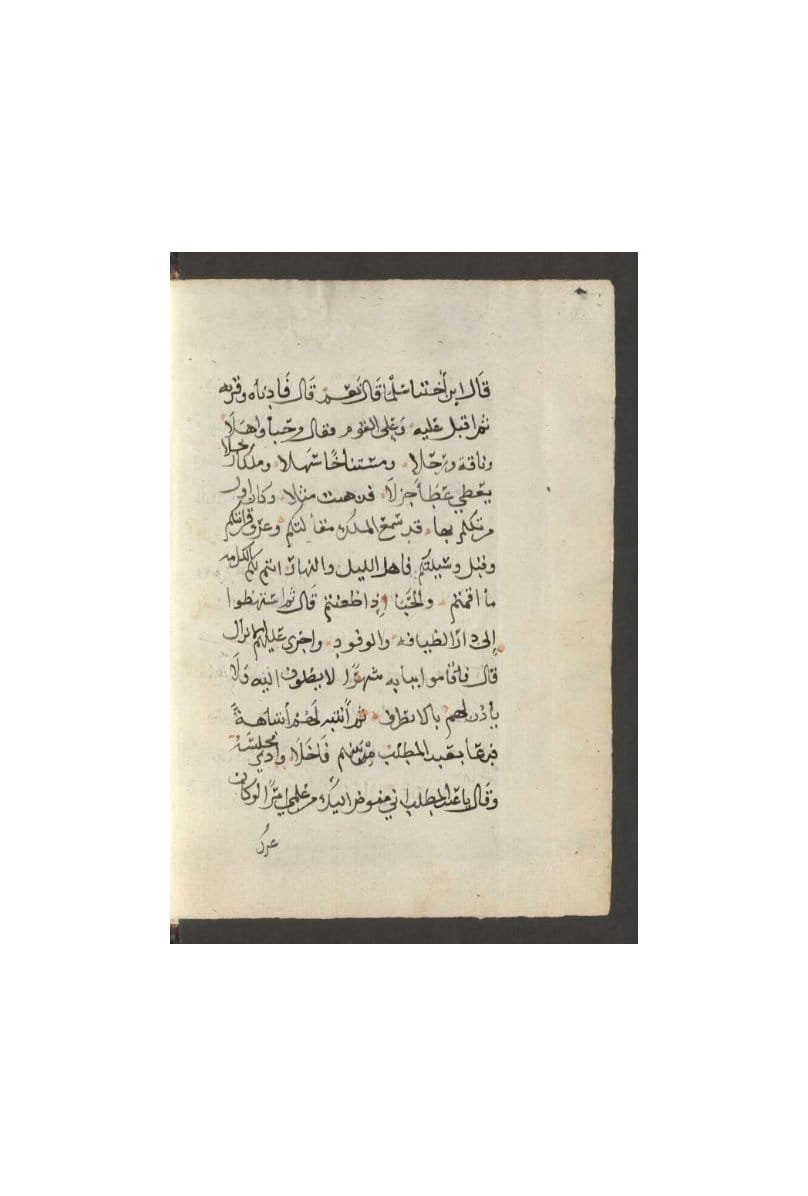 قال ابن أختنا سلما قال نعم قال فادناه وقربه
ثم اقبل عليه وعلى القوم فقال وحبا واهلا
وناقة ورحلا ومستناخا سهلا وملكا
يعطي عطأ جزلا وكان اول
من تكلم بها قد سمع الملك مقالتكم وعرف قرابتكم
وقبل وسيلتكم فاهل الليل والنهار انتم لكم الكرامه
ما اقمتم والحبا إذا ظعنتم قال ثم استنهظوا
إلى دار الظيافه والوفود واجرى عليهم
قال فاقاموا ببابه شهرا لا يصلون اليه ولا
يأذن لهم بالانظراف ثم أنتبه لهم أنتباهة
فدعا بعبد المطلب من بينهم فاخلا وادني مجلسه
وقال يا عبد المطلب اني مفوض اليك من علمي امرا لو كان
غيرك